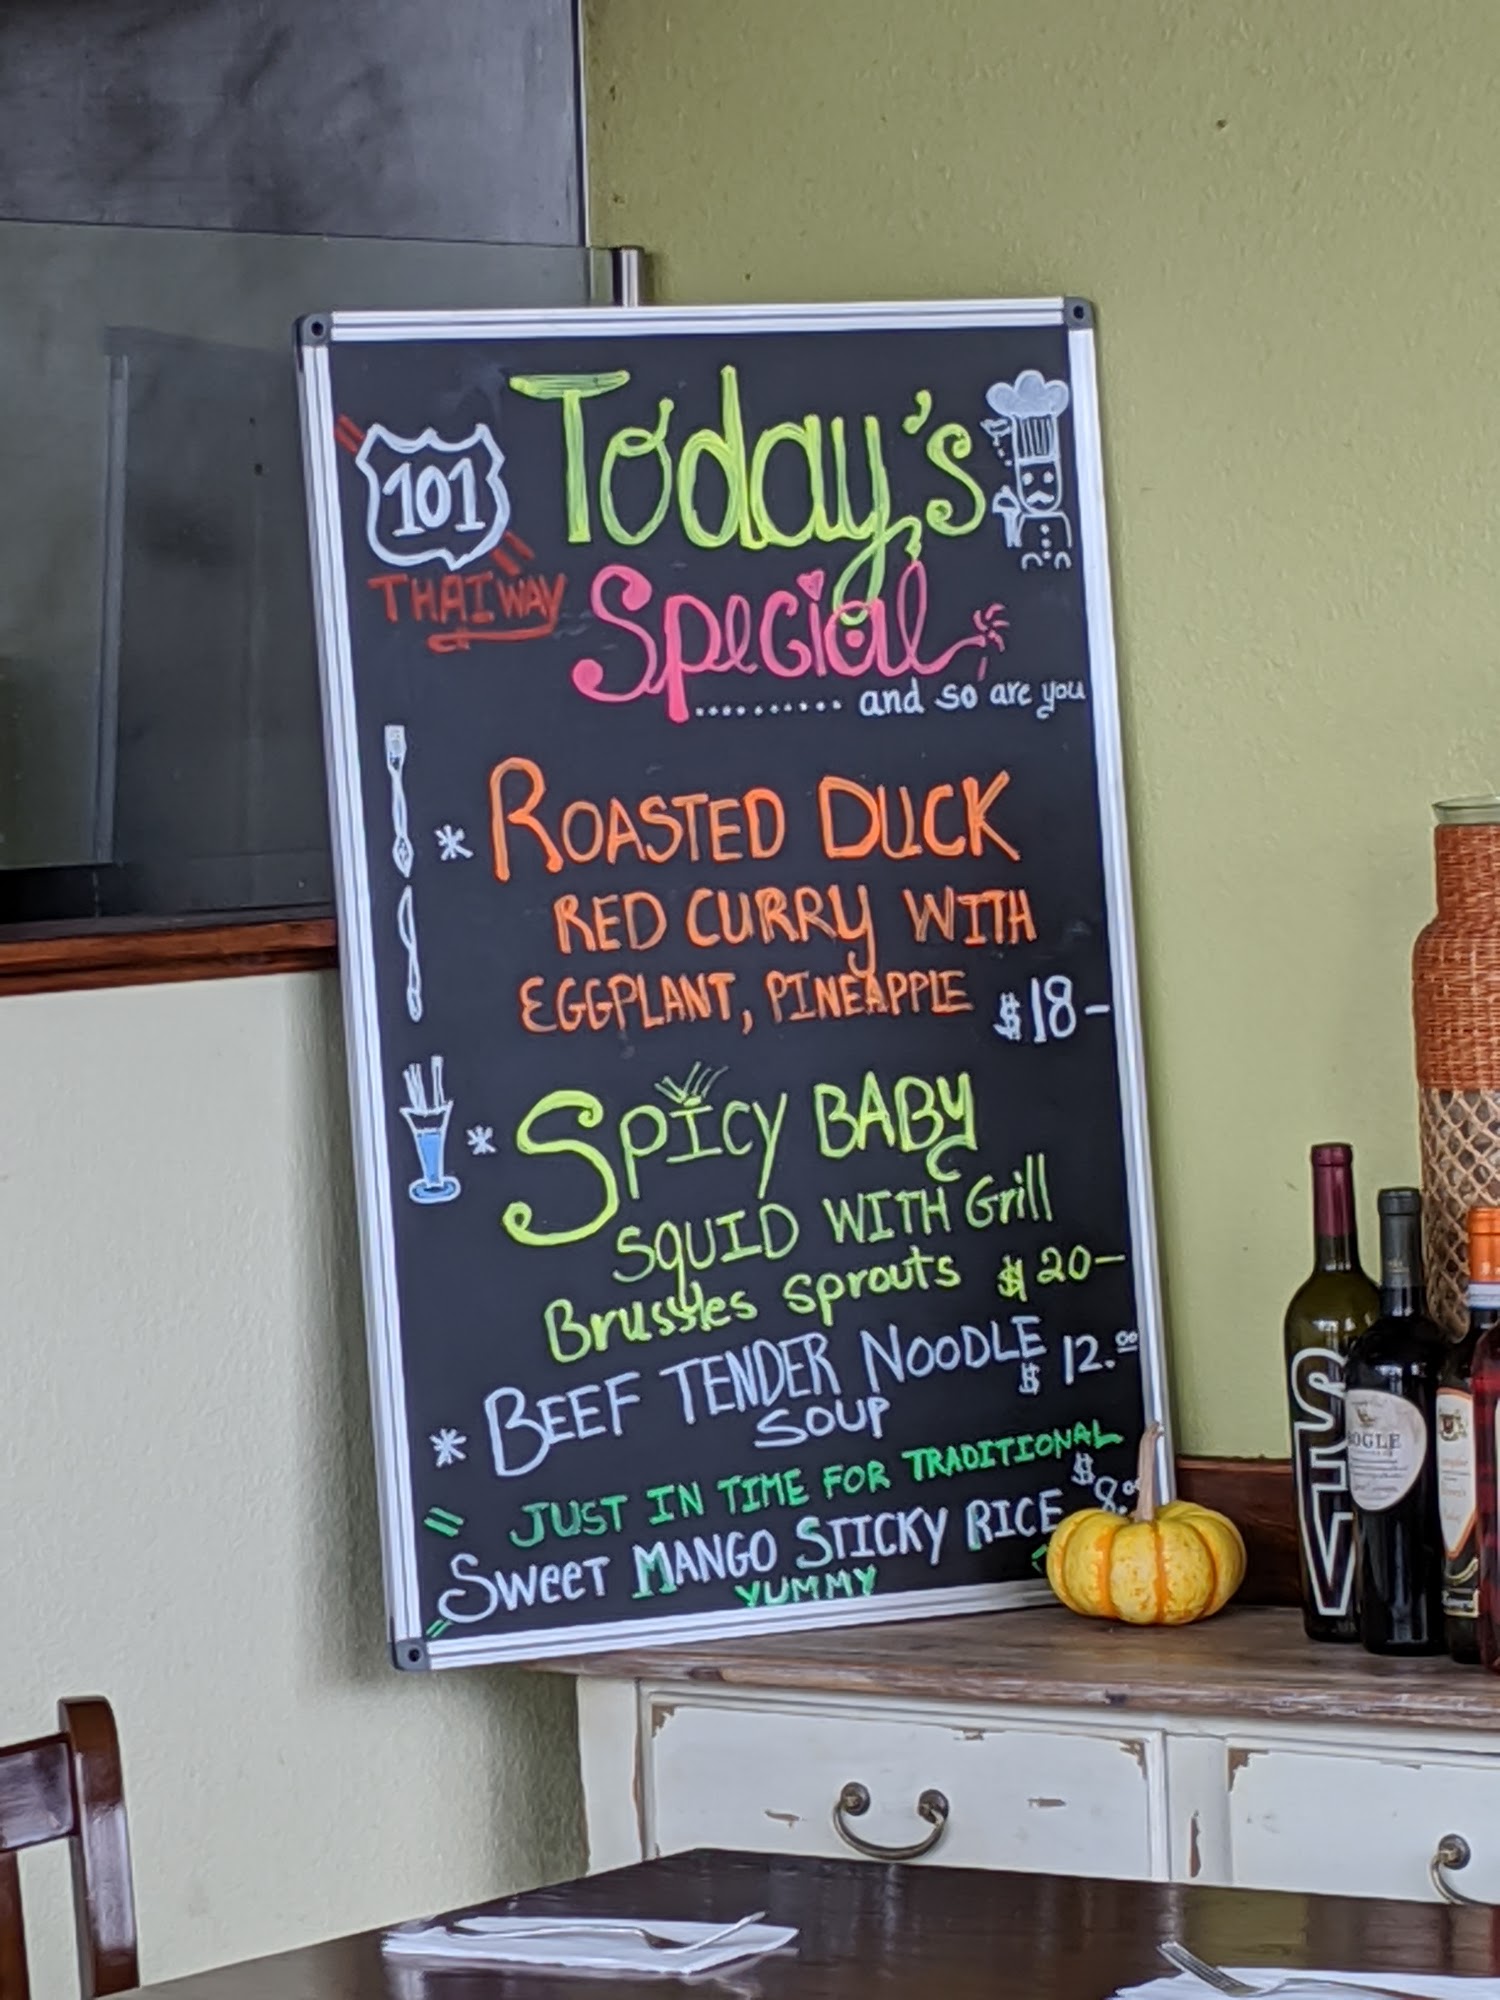 101
THAI WAY
Today's
Special
.......... and so are you
* ROASTED DUCK
RED CURRY WITH
EGGPLANT, PINEAPPLE $18-
* SPICY BABY
SQUID WITH Grill
Brussles sprouts $20-
* BEEF TENDER NOODLE $12.00
SOUP
JUST IN TIME FOR TRADITIONAL
SWEET MANGO STICKY RICE $8.00
YUMMY
BOGLE